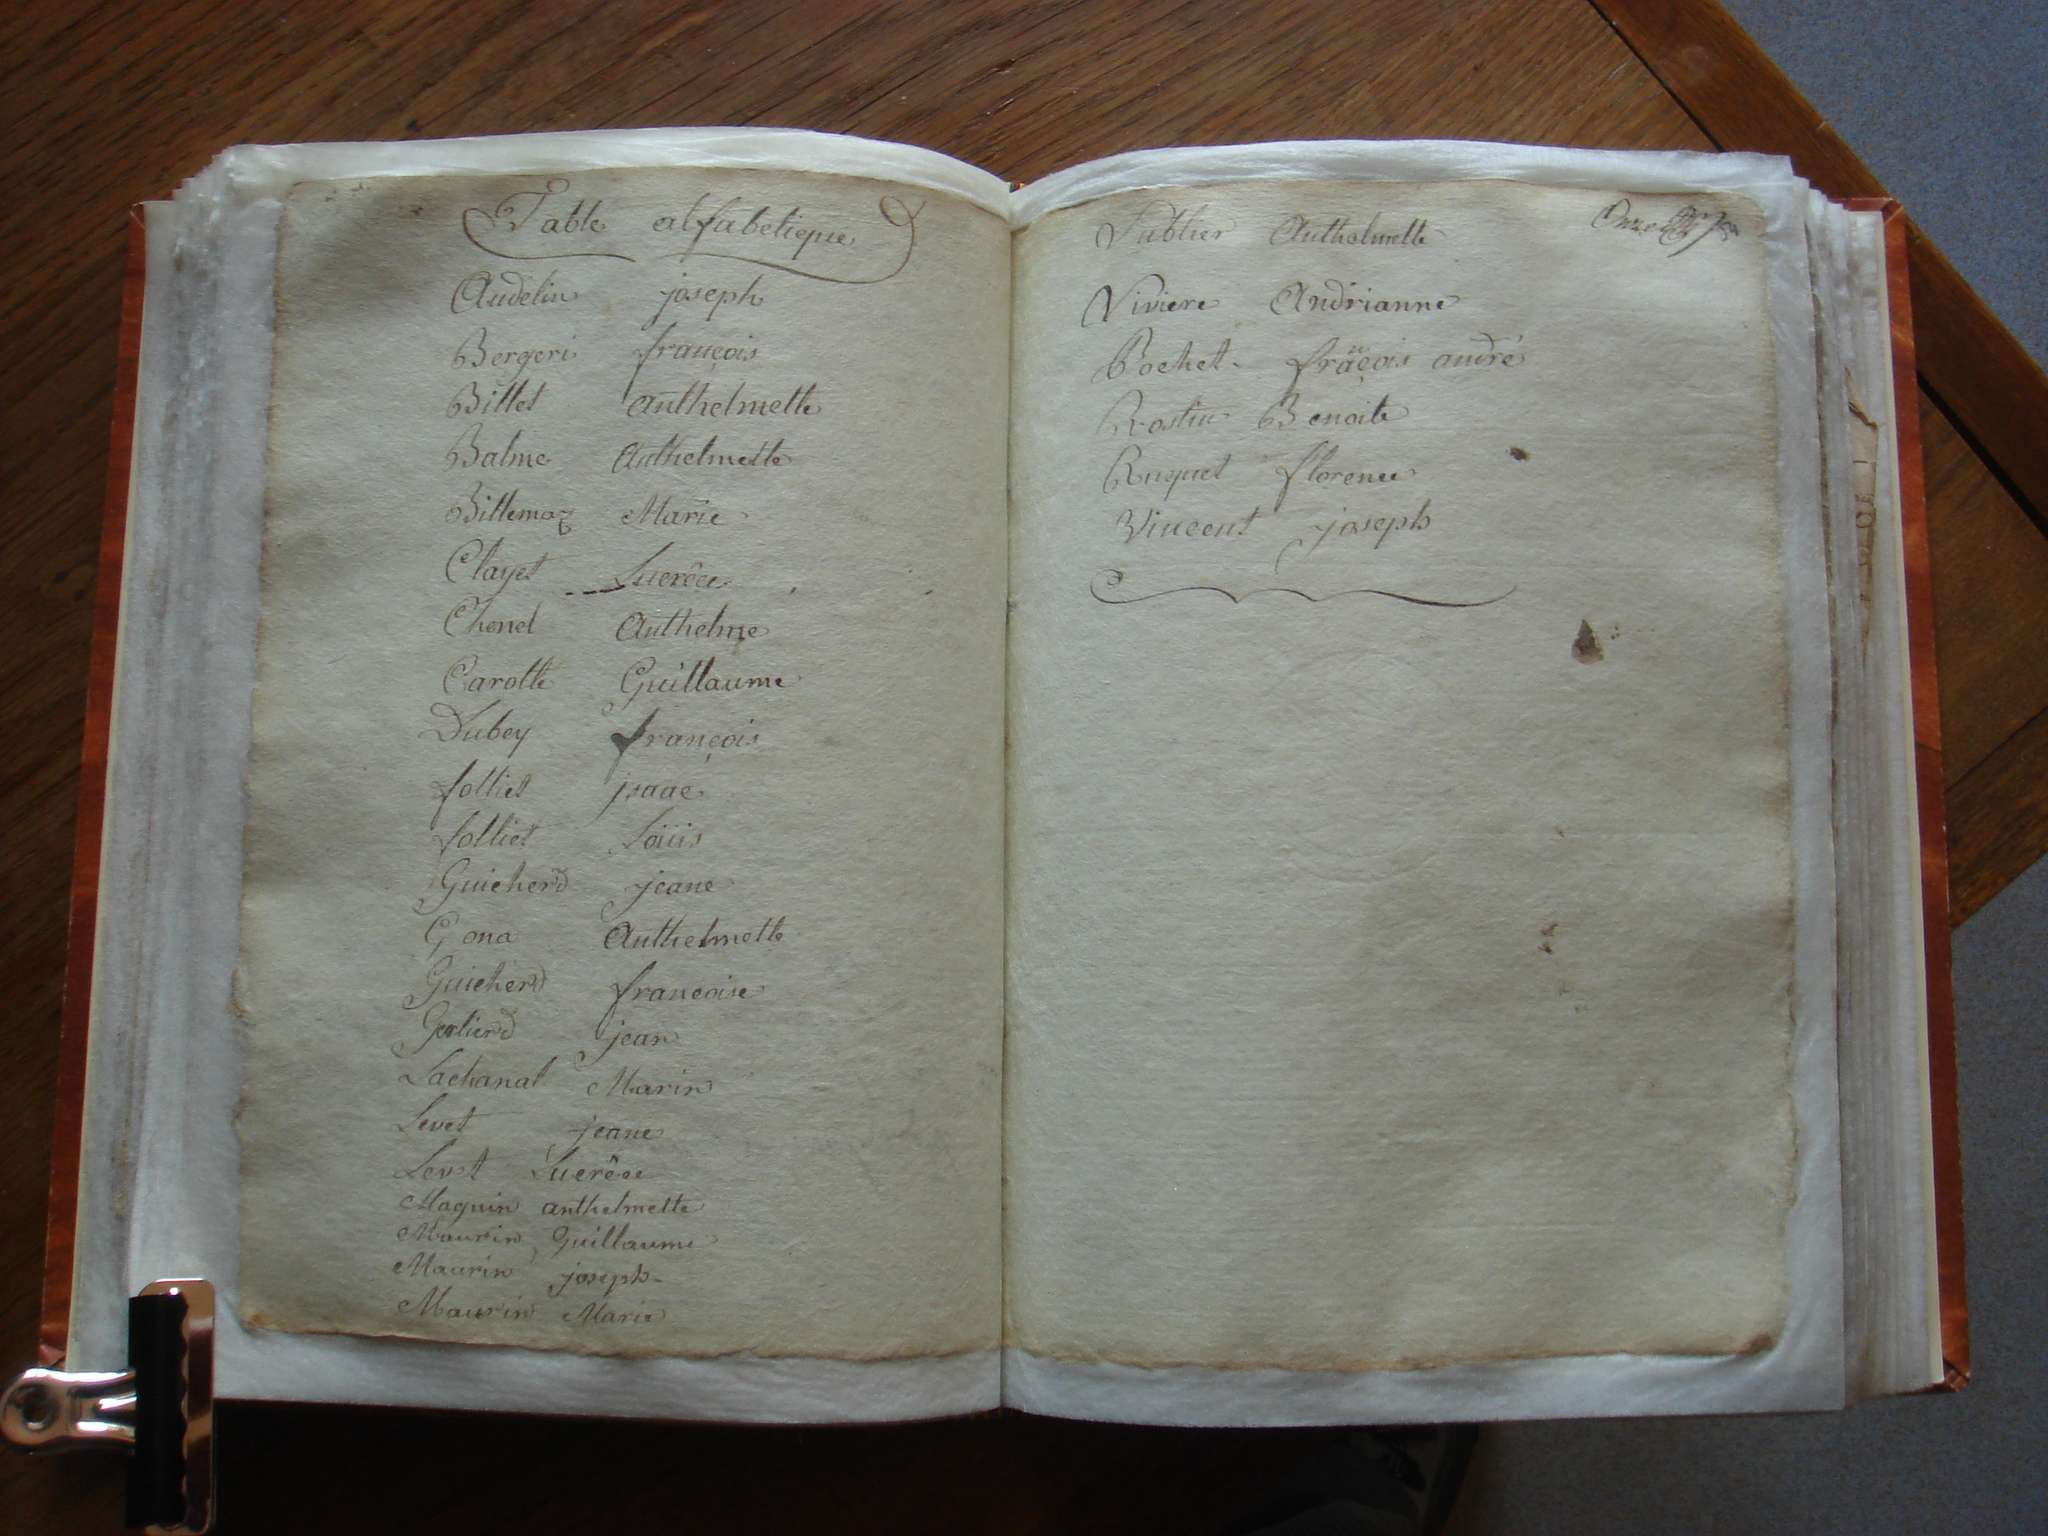 Table alfabetique
Audelin joseph
Bergeri françois
Billet Anthelmette
Balme Anthelmette
Billemaz Marie
Clayet Lucrêce
Chenel Anthelme
Carotte Guillaume
Dubey françois
folliet jsaac
folliet Loüis
Guicherd jeane
Gona Anthelmette
Guicherd françoise
jean
Lachanal Marin
Levet jeane
Levet Lucrêce
Maguin anthelmette
Maurin Guillaume
Maurin joseph
Maurin Marie
Sublier Anthelmette
Viviere Andrianne
Pochet fraçois andré
Benoite
Ruquet florence
Vincent joseph